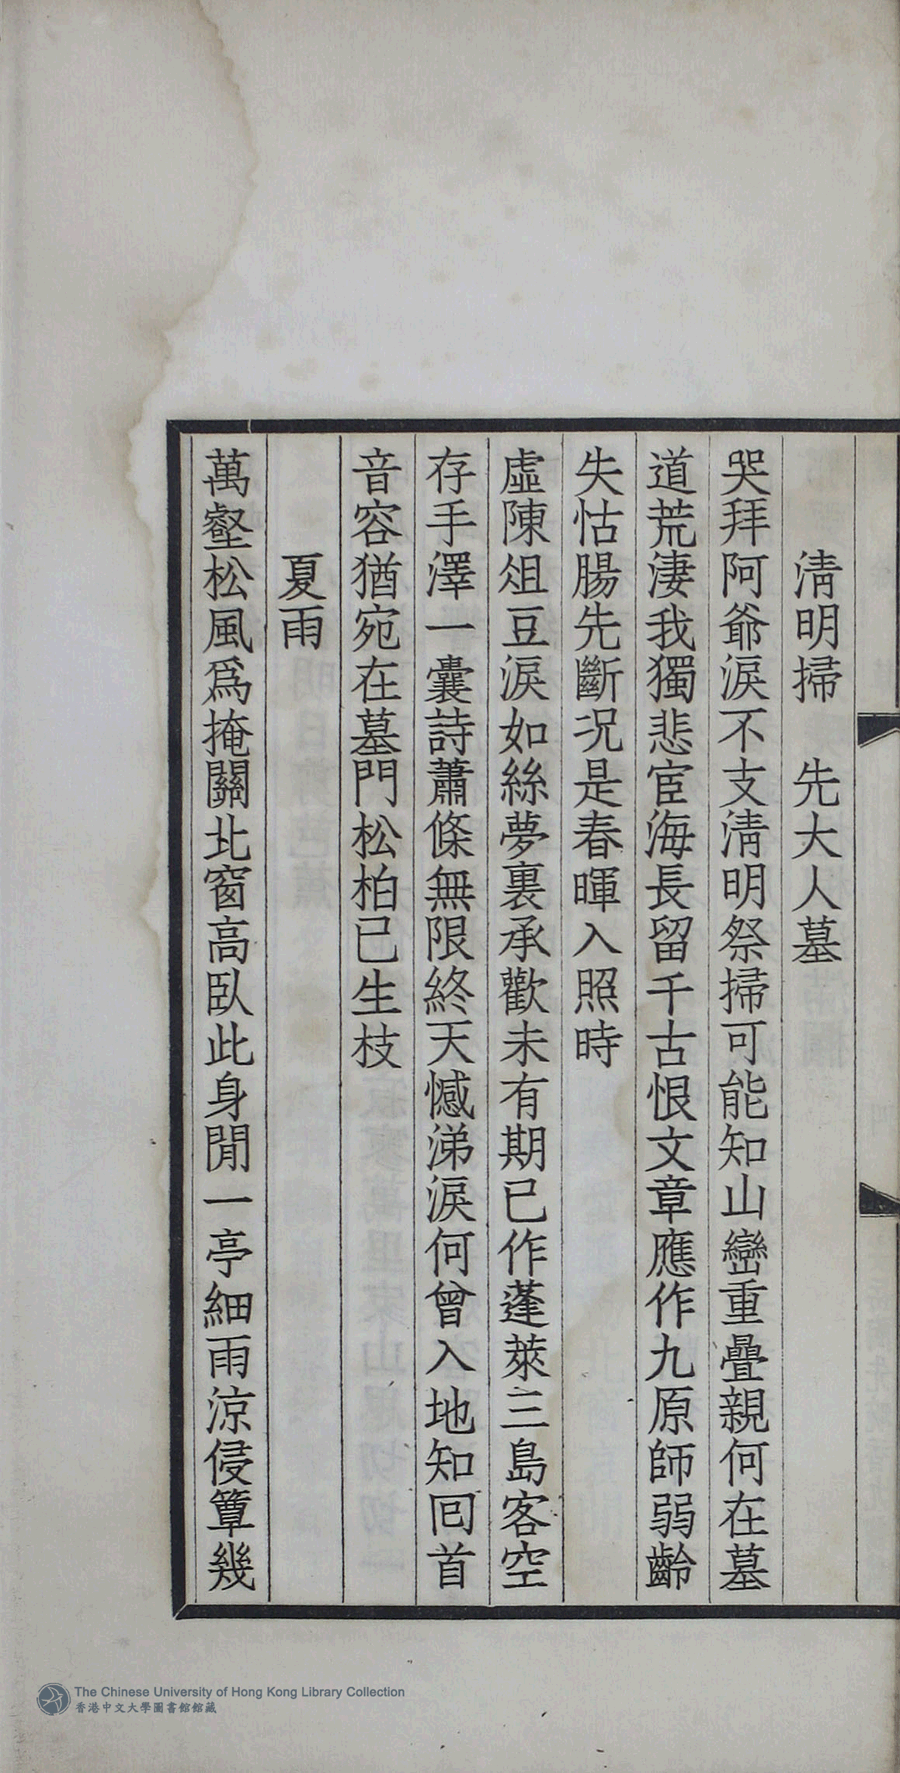 清明掃　先大人墓
哭拜阿爺淚不支清明祭掃可能知山巒重疊親何在墓
道荒淒我獨悲宦海長留千古恨文章應作九原師弱齡
失怙腸先斷況是春暉入照時
虛陳俎豆淚如絲夢裏承歡未有期已作蓬萊三島客空
存手澤一囊詩蕭條無限終天憾涕淚何曾入地知回首
音容猶宛在墓門松柏已生枝
夏雨
萬壑松風爲掩關北窗高臥此身閒一亭細雨涼侵簟幾
The Chinese University of Hong Kong Library Collection
香港中文大學圖書館館藏